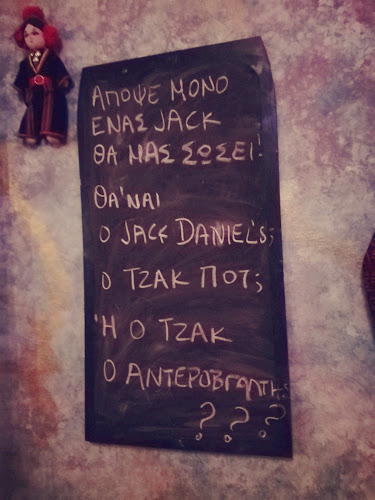 ΑΠΟΨΕ ΜΟΝΟ
ΕΝΑΣ JACK
ΘΑ ΜΑΣ ΣΩΣΕΙ!
ΘΑ'ΝΑΙ
Ο JACK DANIEL'S;
Ο ΤΖΑΚ ΠΟΤ;
'Η Ο ΤΖΑΚ
Ο ΑΝΤΕΡΟΒΓΑΛΤΗΣ
???